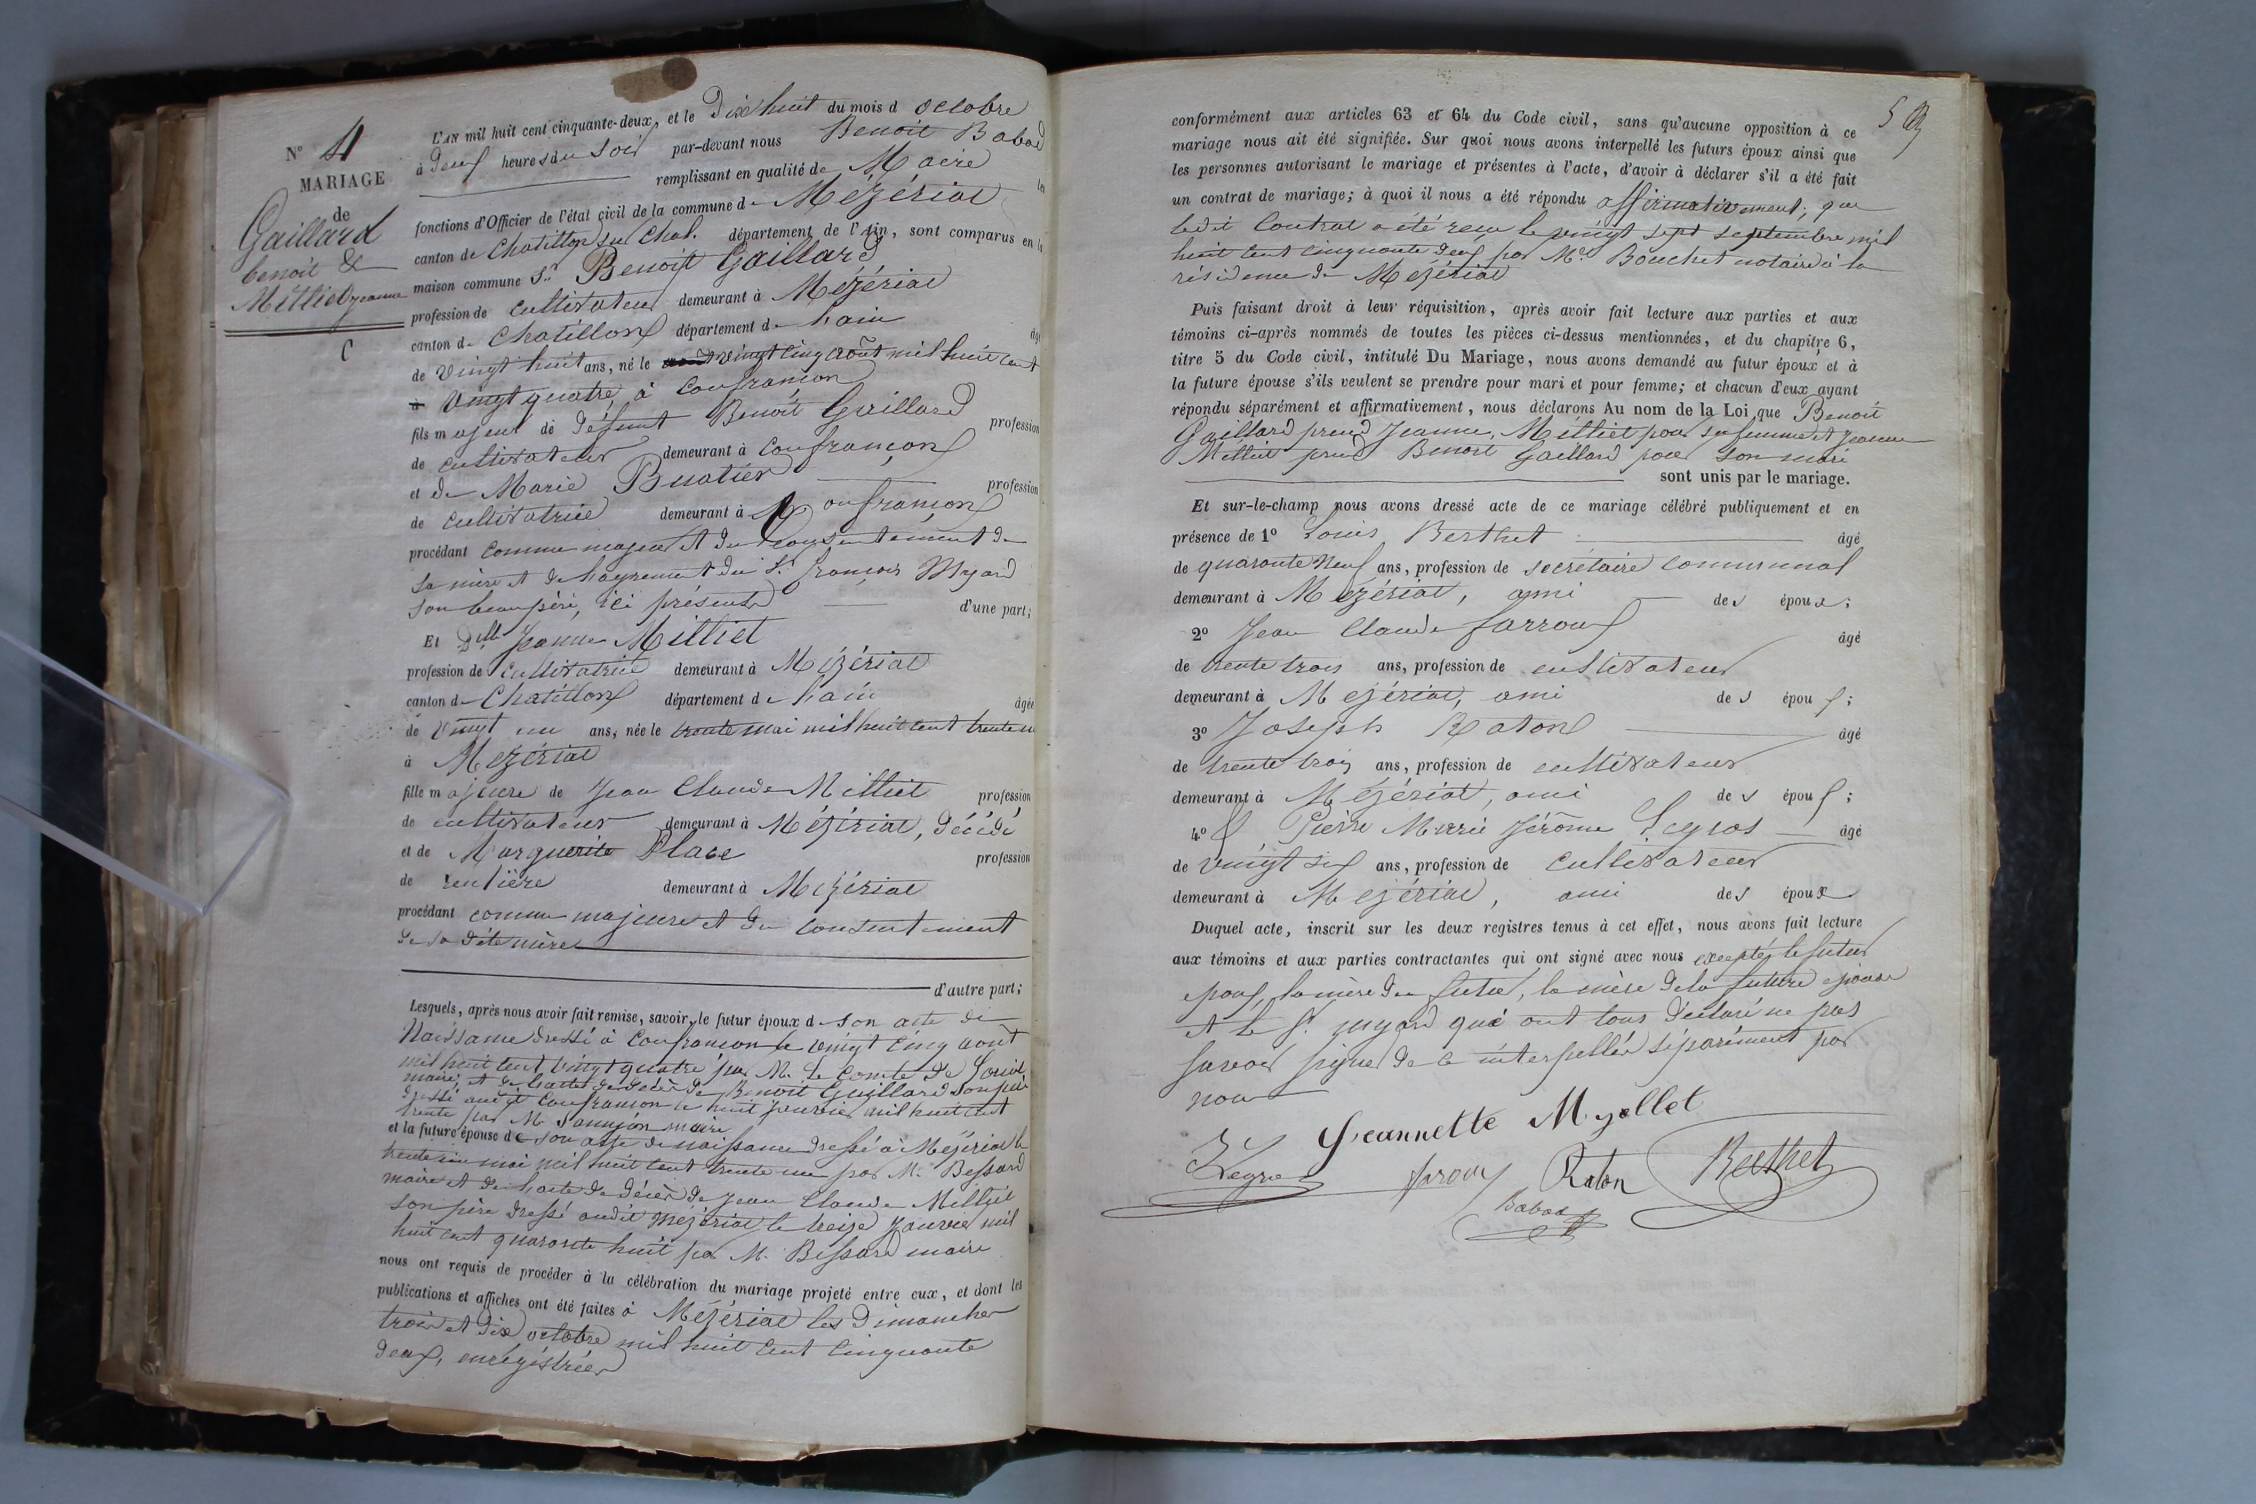 N° 4
MARIAGE
de
Gaillard
benoit &
Milliet jeanne
C
L'AN mil huit cent cinquante-deux, et le Dix huit du mois d octobre
à Deux heures du soir par-devant nous Benoit Babad
remplissant en qualité de Maire les
fonctions d'Officier de l'état civil de la commune de Mézériat
canton de Chatillon sur Chal. département de l'Ain, sont comparus en la
maison commune Sr. Benoit Gaillard
profession de cultivateur demeurant à Mézériat
canton de Chatillon département de l'ain âgé
de vingt huit ans, né le vingt cinq août mil huit cent
vingt quatre, à Confrançon
fils majeur de défunt Benoit Gaillard profession
de cultivateur demeurant à Confrançon
et de Marie Buatier profession
de cultivatrice demeurant à Confrançon
procédant comme majeur et du consentement de
sa mère et de l'agrement du Sr. françois Myard
son beau père, ici présents d'une part;
Et Dlle Jeanne Milliet
profession de cultivatrice demeurant à Mézériat
canton de Chatillon département de l'ain âgée
de vingt un ans, née le trente mai mil huit cent trente un
à Mezériat
fille majeure de Jean Claude Milliet profession
de cultivateur demeurant à Mézériat, décédé
et de Marguerite Place profession
de rentière demeurant à Mezériat
procédant comme majeure et du consentement
de sa dite mère
d'autre part;
Lesquels, après nous avoir fait remise, savoir, le futur époux de son acte de
Naissance dressé à Confrancon le vingt cinq août
mil huit cent vingt quatre par M. Le Comte de
maire, et de l'acte de décès de Benoit Gaillard son père
dressé audit Confrancon le huit janvier mil huit cent
trente par M. maire
et la future épouse de son acte de naissance dressé à Mézériat le
trente un mai mil huit cent trente un par M. Bessard
maire et de l'acte de décès de Jean Claude Milliet
son père dressé audit Mézériat le treize janvier mil
huit cent quarante huit par M. Bessard maire
nous ont requis de procéder à la célébration du mariage projeté entre eux, et dont les
publications et affiches ont été faites à Mézériat les Dimanches
trois et dix octobre mil huit cent cinquante
deux, enrégistrées
conformément aux articles 63 et 64 du Code civil, sans qu'aucune opposition à ce
mariage nous ait été signifiée. Sur quoi nous avons interpellé les futurs époux ainsi que
les personnes autorisant le mariage et présentes à l'acte, d'avoir à déclarer s'il a été fait
un contrat de mariage; à quoi il nous a été répondu affirmativement; que
ledit Contrat a été reçu le vingt sept septembre mil
huit cent cinquante deux par Me Bouchet notaire à la
résidence de Mezériat
Puis faisant droit à leur réquisition, après avoir fait lecture aux parties et aux
témoins ci-après nommés de toutes les pièces ci-dessus mentionnées, et du chapitre 6,
titre 5 du Code civil, intitulé Du Mariage, nous avons demandé au futur époux et à
la future épouse s'ils veulent se prendre pour mari et pour femme; et chacun d'eux ayant
répondu séparément et affirmativement, nous déclarons Au nom de la Loi que Benoit
Gaillard prend Jeanne Milliet pour sa femme et Jeanne
Milliet prend Benoit Gaillard pour son mari
sont unis par le mariage.
Et sur-le-champ nous avons dressé acte de ce mariage célébré publiquement et en
présence de 1° Louis Berthet âgé
de quarante neuf ans, profession de secrétaire communal
demeurant à Mezériat, ami des époux;
2° Jean Claude farroux âgé
de trente trois ans, profession de cultivateur
demeurant à Mezériat, ami des époux;
3° Joseph Raton âgé
de trente trois ans, profession de cultivateur
demeurant à Mézériat, ami des époux;
4° Pierre Marie Jérôme Legros âgé
de vingt six ans, profession de cultivateur
demeurant à Mezériat, ami des époux
Duquel acte, inscrit sur les deux registres tenus à cet effet, nous avons fait lecture
aux témoins et aux parties contractantes qui ont signé avec nous excepté le futur
époux, la mère du futur, la mère de la future épouse
et le Sr. myard qui ont tous déclaré ne pas
savoir signer de ce interpellés séparément par
nous
Jeannette Myellet
farroux Raton Berthet
Babad